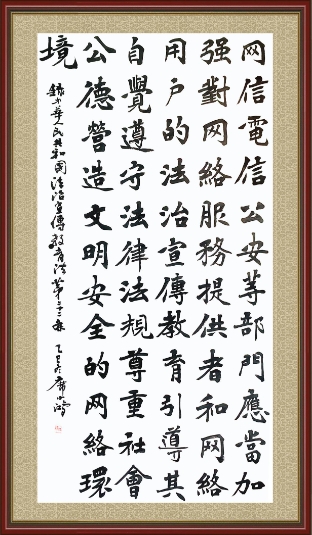 网信電信公安等部門應當加
强對网絡服務提供者和网絡
用户的法治宣傳教育引導其
自覺遵守法律法規尊重社會
公德營造文明安全的网絡環
境
錄中華人民共和國法治宣傳教育法第 条 乙巳冬